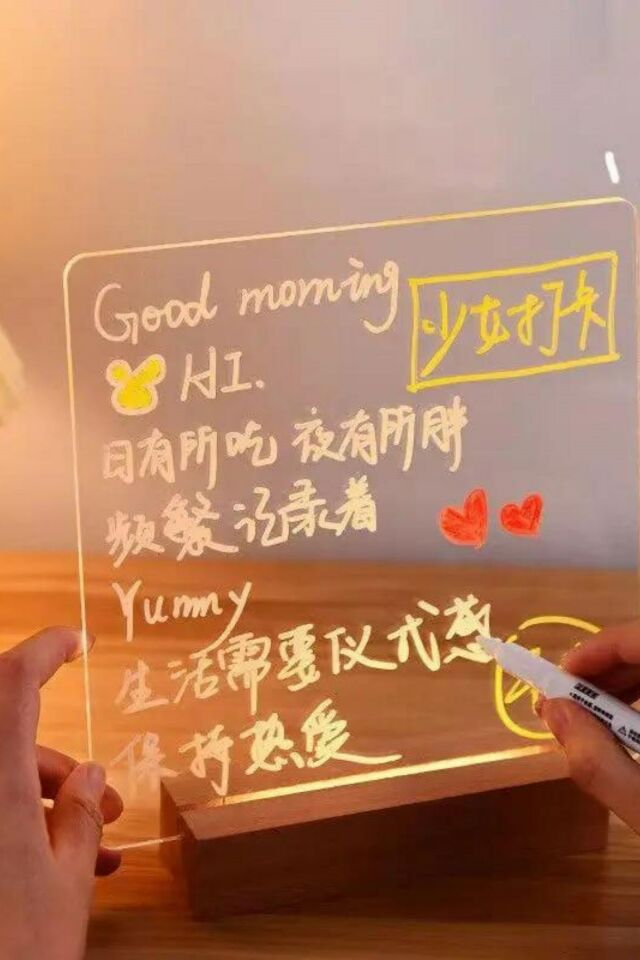 Good morning
少女打卡
HI.
日有所吃 夜有所胖
频繁记录着
Yummy
生活需要仪式感
保持热爱